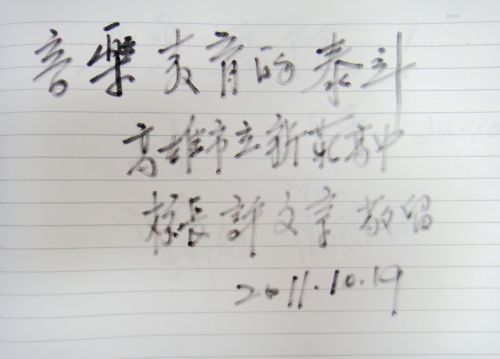 音樂教育的泰斗
高雄市立新莊高中
校長許文宗敬留
2011.10.19